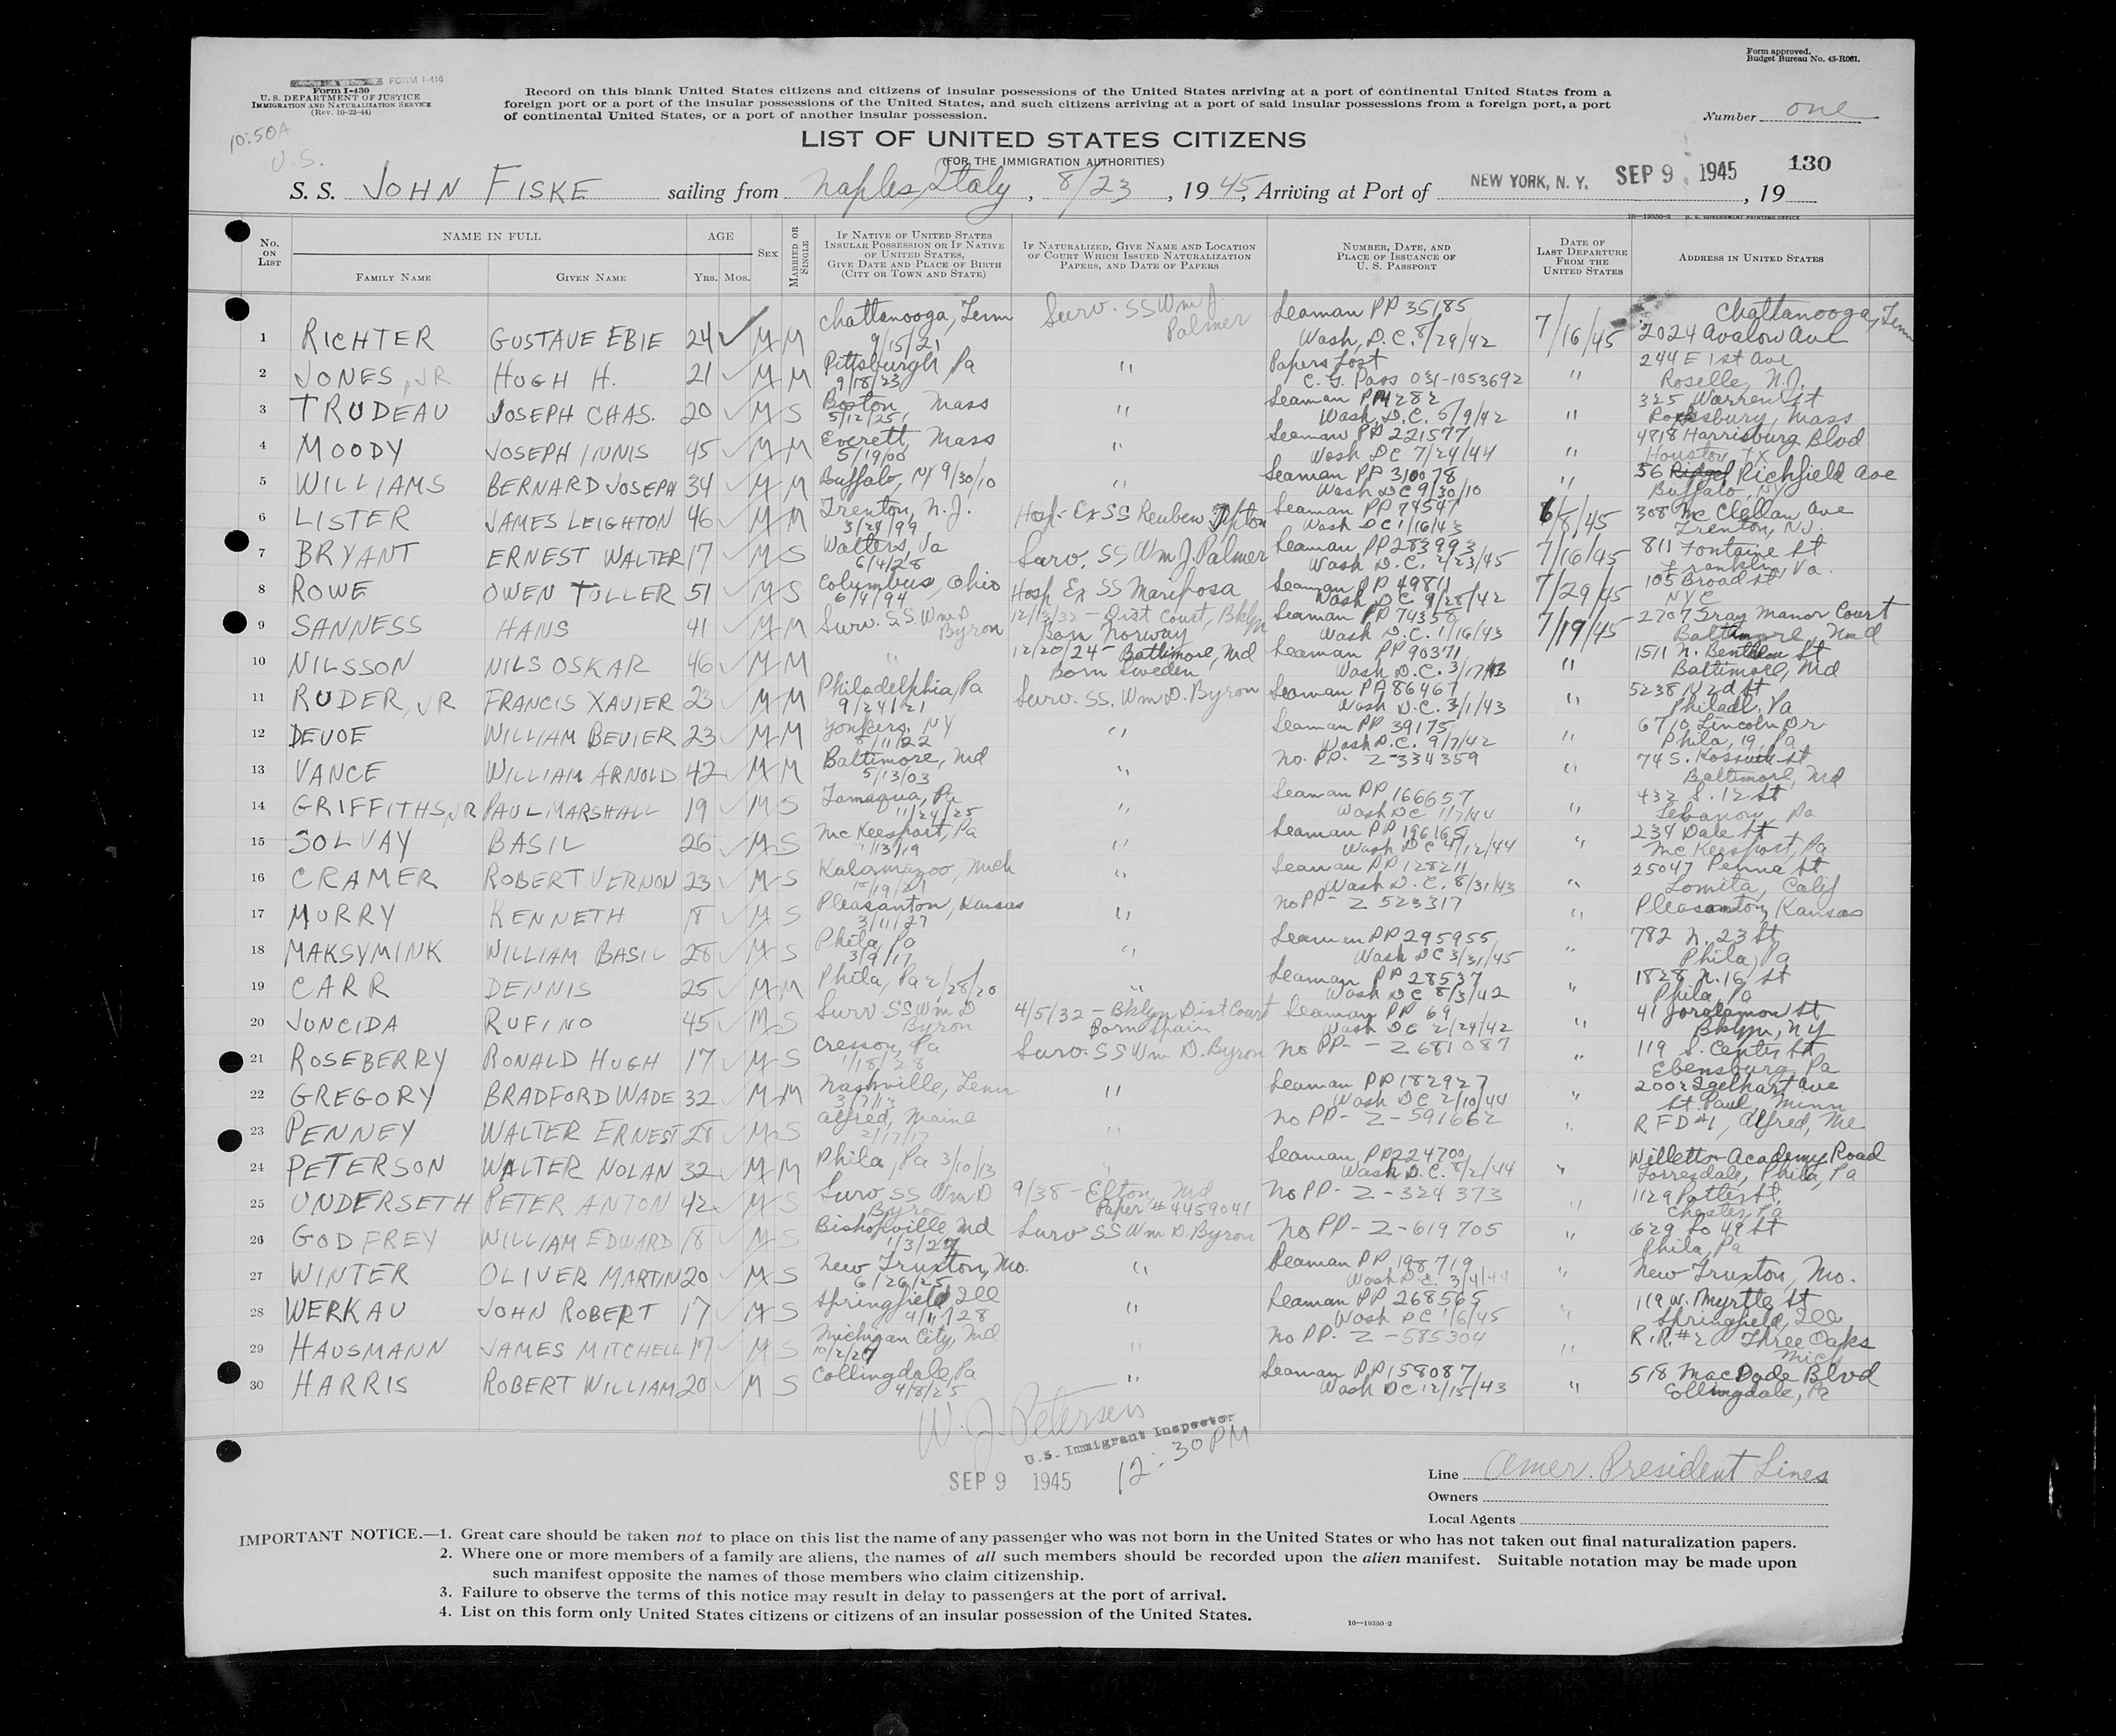 Form approved.
Budget Bureau No. 43-R061.
FORM I-416
Form I-430
U. S. DEPARTMENT OF JUSTICE
IMMIGRATION AND NATURALIZATION SERVICE
(Rev. 10-23-44)
10:50A
U.S.
Record on this blank United States citizens and citizens of insular possessions of the United States arriving at a port of continental United States from a
foreign port or a port of the insular possessions of the United States, and such citizens arriving at a port of said insular possessions from a foreign port, a port
of continental United States, or a port of another insular possession.
Number one
LIST OF UNITED STATES CITIZENS
(FOR THE IMMIGRATION AUTHORITIES)
130
S. S. JOHN FISKE sailing from Naples, Italy, 8/23, 1945, Arriving at Port of NEW YORK, N. Y. SEP 9 1945, 19
16—19350-3 U. S. GOVERNMENT PRINTING OFFICE
No. ON LIST
NAME IN FULL
FAMILY NAME GIVEN NAME
AGE
YRS. MOS.
SEX
MARRIED OR SINGLE
IF NATIVE OF UNITED STATES INSULAR POSSESSION OR IF NATIVE OF UNITED STATES, GIVE DATE AND PLACE OF BIRTH (CITY OR TOWN AND STATE)
IF NATURALIZED, GIVE NAME AND LOCATION OF COURT WHICH ISSUED NATURALIZATION PAPERS, AND DATE OF PAPERS
NUMBER, DATE, AND PLACE OF ISSUANCE OF U. S. PASSPORT
DATE OF LAST DEPARTURE FROM THE UNITED STATES
ADDRESS IN UNITED STATES
1 RICHTER GUSTAVE EBIE 24 M M Chattanooga, Tenn 9/15/21 Surv. SS Wm J. Palmer Seaman PP 35185 Wash, D.C. 8/29/42 7/16/45 Chattanooga, Tenn 2024 Avalon Ave
2 JONES, JR HUGH H. 21 M M Pittsburgh Pa 9/18/23 " Papers Lost C. G. Pass 031-1053692 " 244 E 1st Ave Roselle, N.J.
3 TRUDEAU JOSEPH CHAS. 20 M S Boston, Mass 5/12/25 " Seaman PP 4282 Wash, D.C. 5/9/42 " 325 Warren St Roxbury, Mass
4 MOODY JOSEPH INNIS 45 M M Everett, Mass 5/19/00 " Seaman PP 221577 Wash DC 7/24/44 " 4818 Harrisburg Blvd Houston, TX
5 WILLIAMS BERNARD JOSEPH 34 M M Buffalo, NY 9/30/10 " Seaman PP 310078 Wash DC 9/30/10 " 56 Richfield Ave Buffalo, NY
6 LISTER JAMES LEIGHTON 46 M M Trenton, N.J. 3/29/99 Hosp- Ex SS Reuben Tipton Seaman PP 74547 Wash DC 1/16/43 6/8/45 308 McClellan Ave Trenton, NJ.
7 BRYANT ERNEST WALTER 17 M S Walters, Va 6/4/28 Surv. SS Wm J. Palmer Seaman PP 283993 Wash D.C. 2/23/45 7/16/45 811 Fontaine St Franklin, Va.
8 ROWE OWEN TOLLER 51 M S Columbus, Ohio 6/4/94 Hosp Ex SS Mariposa Seaman PP 49811 Wash DC 9/28/42 7/29/45 105 Broad St NYC
9 SANNESS HANS 41 M M Surv. S.S. Wm D Byron 12/13/32 - Dist Court, Bklyn Born Norway Seaman PP 74350 Wash D.C. 1/16/43 7/19/45 2707 Gray Manor Court Baltimore, Md
10 NILSSON NILS OSKAR 46 M M " 12/20/24 - Baltimore, Md Born Sweden Seaman PP 90371 Wash D.C. 3/17/43 " 1511 N. Bentalou St Baltimore, Md
11 RUDER, JR FRANCIS XAVIER 23 M M Philadelphia, Pa 9/24/21 Surv. SS. Wm D. Byron Seaman PP 86467 Wash D.C. 3/1/43 " 5238 N 2d St Philad. Pa
12 DEVOE WILLIAM BEVIER 23 M M Yonkers, NY 8/11/22 " Seaman PP 39175 Wash D.C. 9/7/42 " 6710 Lincoln Dr Phila, 19, Pa
13 VANCE WILLIAM ARNOLD 42 M M Baltimore, Md 5/13/03 " No. PP- Z-334359 " 74 S. Kossuth St Baltimore, Md
14 GRIFFITHS, JR PAUL MARSHALL 19 M S Tamaqua, Pa 11/24/25 " Seaman PP 166657 Wash DC 1/7/44 " 432 S. 12 St Lebanon, Pa
15 SOLVAY BASIL 26 M S McKeesport, Pa 1/13/19 " Seaman PP 196165 Wash DC 4/12/44 " 234 Dale St McKeesport, Pa
16 CRAMER ROBERT VERNON 23 M S Kalamazoo, Mich 10/19/21 " Seaman PP 128211 Wash D.C. 8/31/43 " 25047 Penna St Lomita, Calif
17 MURRY KENNETH 18 M S Pleasanton, Kansas 3/11/27 " No PP- Z 523317 " Pleasanton, Kansas
18 MAKSYMINK WILLIAM BASIL 28 M S Phila, Pa 3/9/17 " Seamen PP 295955 Wash DC 3/31/45 " 782 N. 23 St Phila, Pa
19 CARR DENNIS 25 M M Phila, Pa 2/28/20 " Seaman PP 28537 Wash DC 8/3/42 " 1828 N. 16 St Phila, Pa
20 JUNCIDA RUFINO 45 M S Surv. SS Wm D Byron 4/5/32 - Bklyn Dist Court Born Spain Seaman PP 69 Wash DC 2/24/42 " 41 Joralamon St Bklyn, NY
21 ROSEBERRY RONALD HUGH 17 M S Cresson, Pa 1/18/28 Surv. SS Wm D. Byron No PP- - Z 681087 " 119 S. Center St Ebensburg, Pa
22 GREGORY BRADFORD WADE 32 M M Nashville, Tenn 3/7/13 " Seaman PP 182927 Wash DC 2/10/44 " 2002 Iglehart Ave St. Paul, Minn
23 PENNEY WALTER ERNEST 28 M S Alfred, Maine 2/17/17 " No PP- Z-591662 " RFD #1, Alfred, Me
24 PETERSON WALTER NOLAN 32 M M Phila, Pa 3/10/13 " Seaman PP 224700 Wash D.C. 8/2/44 " Willetts-Academy Road Torresdale, Phila, Pa
25 UNDERSETH PETER ANTON 42 M S Surv SS Wm D Byron 9/38 - Elton, Md Paper #4459041 No PP- Z-324373 " 1129 Potter St. Chester, Pa
26 GODFREY WILLIAM EDWARD 18 M S Bishopville, Md 1/3/27 Surv SS Wm D. Byron No PP- Z-619705 " 629 So 49 St Phila, Pa
27 WINTER OLIVER MARTIN 20 M S New Truxton, Mo. 6/26/25 " Seaman PP 198719 Wash D.C. 3/4/44 " New Truxton, Mo.
28 WERKAU JOHN ROBERT 17 M S Springfield, Ill 4/11/28 " Seaman PP 268565 Wash DC 1/6/45 " 119 W. Myrtle St Springfield, Ill
29 HAUSMANN JAMES MITCHELL 17 M S Michigan City, Ind 10/2/27 " No PP- Z-585304 " R.R. #2 Three Oaks Mich
30 HARRIS ROBERT WILLIAM 20 M S Collingdale, Pa 4/8/25 " Seaman PP 158087 Wash DC 12/15/43 " 518 MacDade Blvd Collingdale, Pa
W. J. Petersen
U.S. Immigrant Inspector
SEP 9 1945 12:30 PM
Line Amer. President Lines
Owners
Local Agents
IMPORTANT NOTICE.—1. Great care should be taken not to place on this list the name of any passenger who was not born in the United States or who has not taken out final naturalization papers.
2. Where one or more members of a family are aliens, the names of all such members should be recorded upon the alien manifest. Suitable notation may be made upon
such manifest opposite the names of those members who claim citizenship.
3. Failure to observe the terms of this notice may result in delay to passengers at the port of arrival.
4. List on this form only United States citizens or citizens of an insular possession of the United States.
16—19350-2